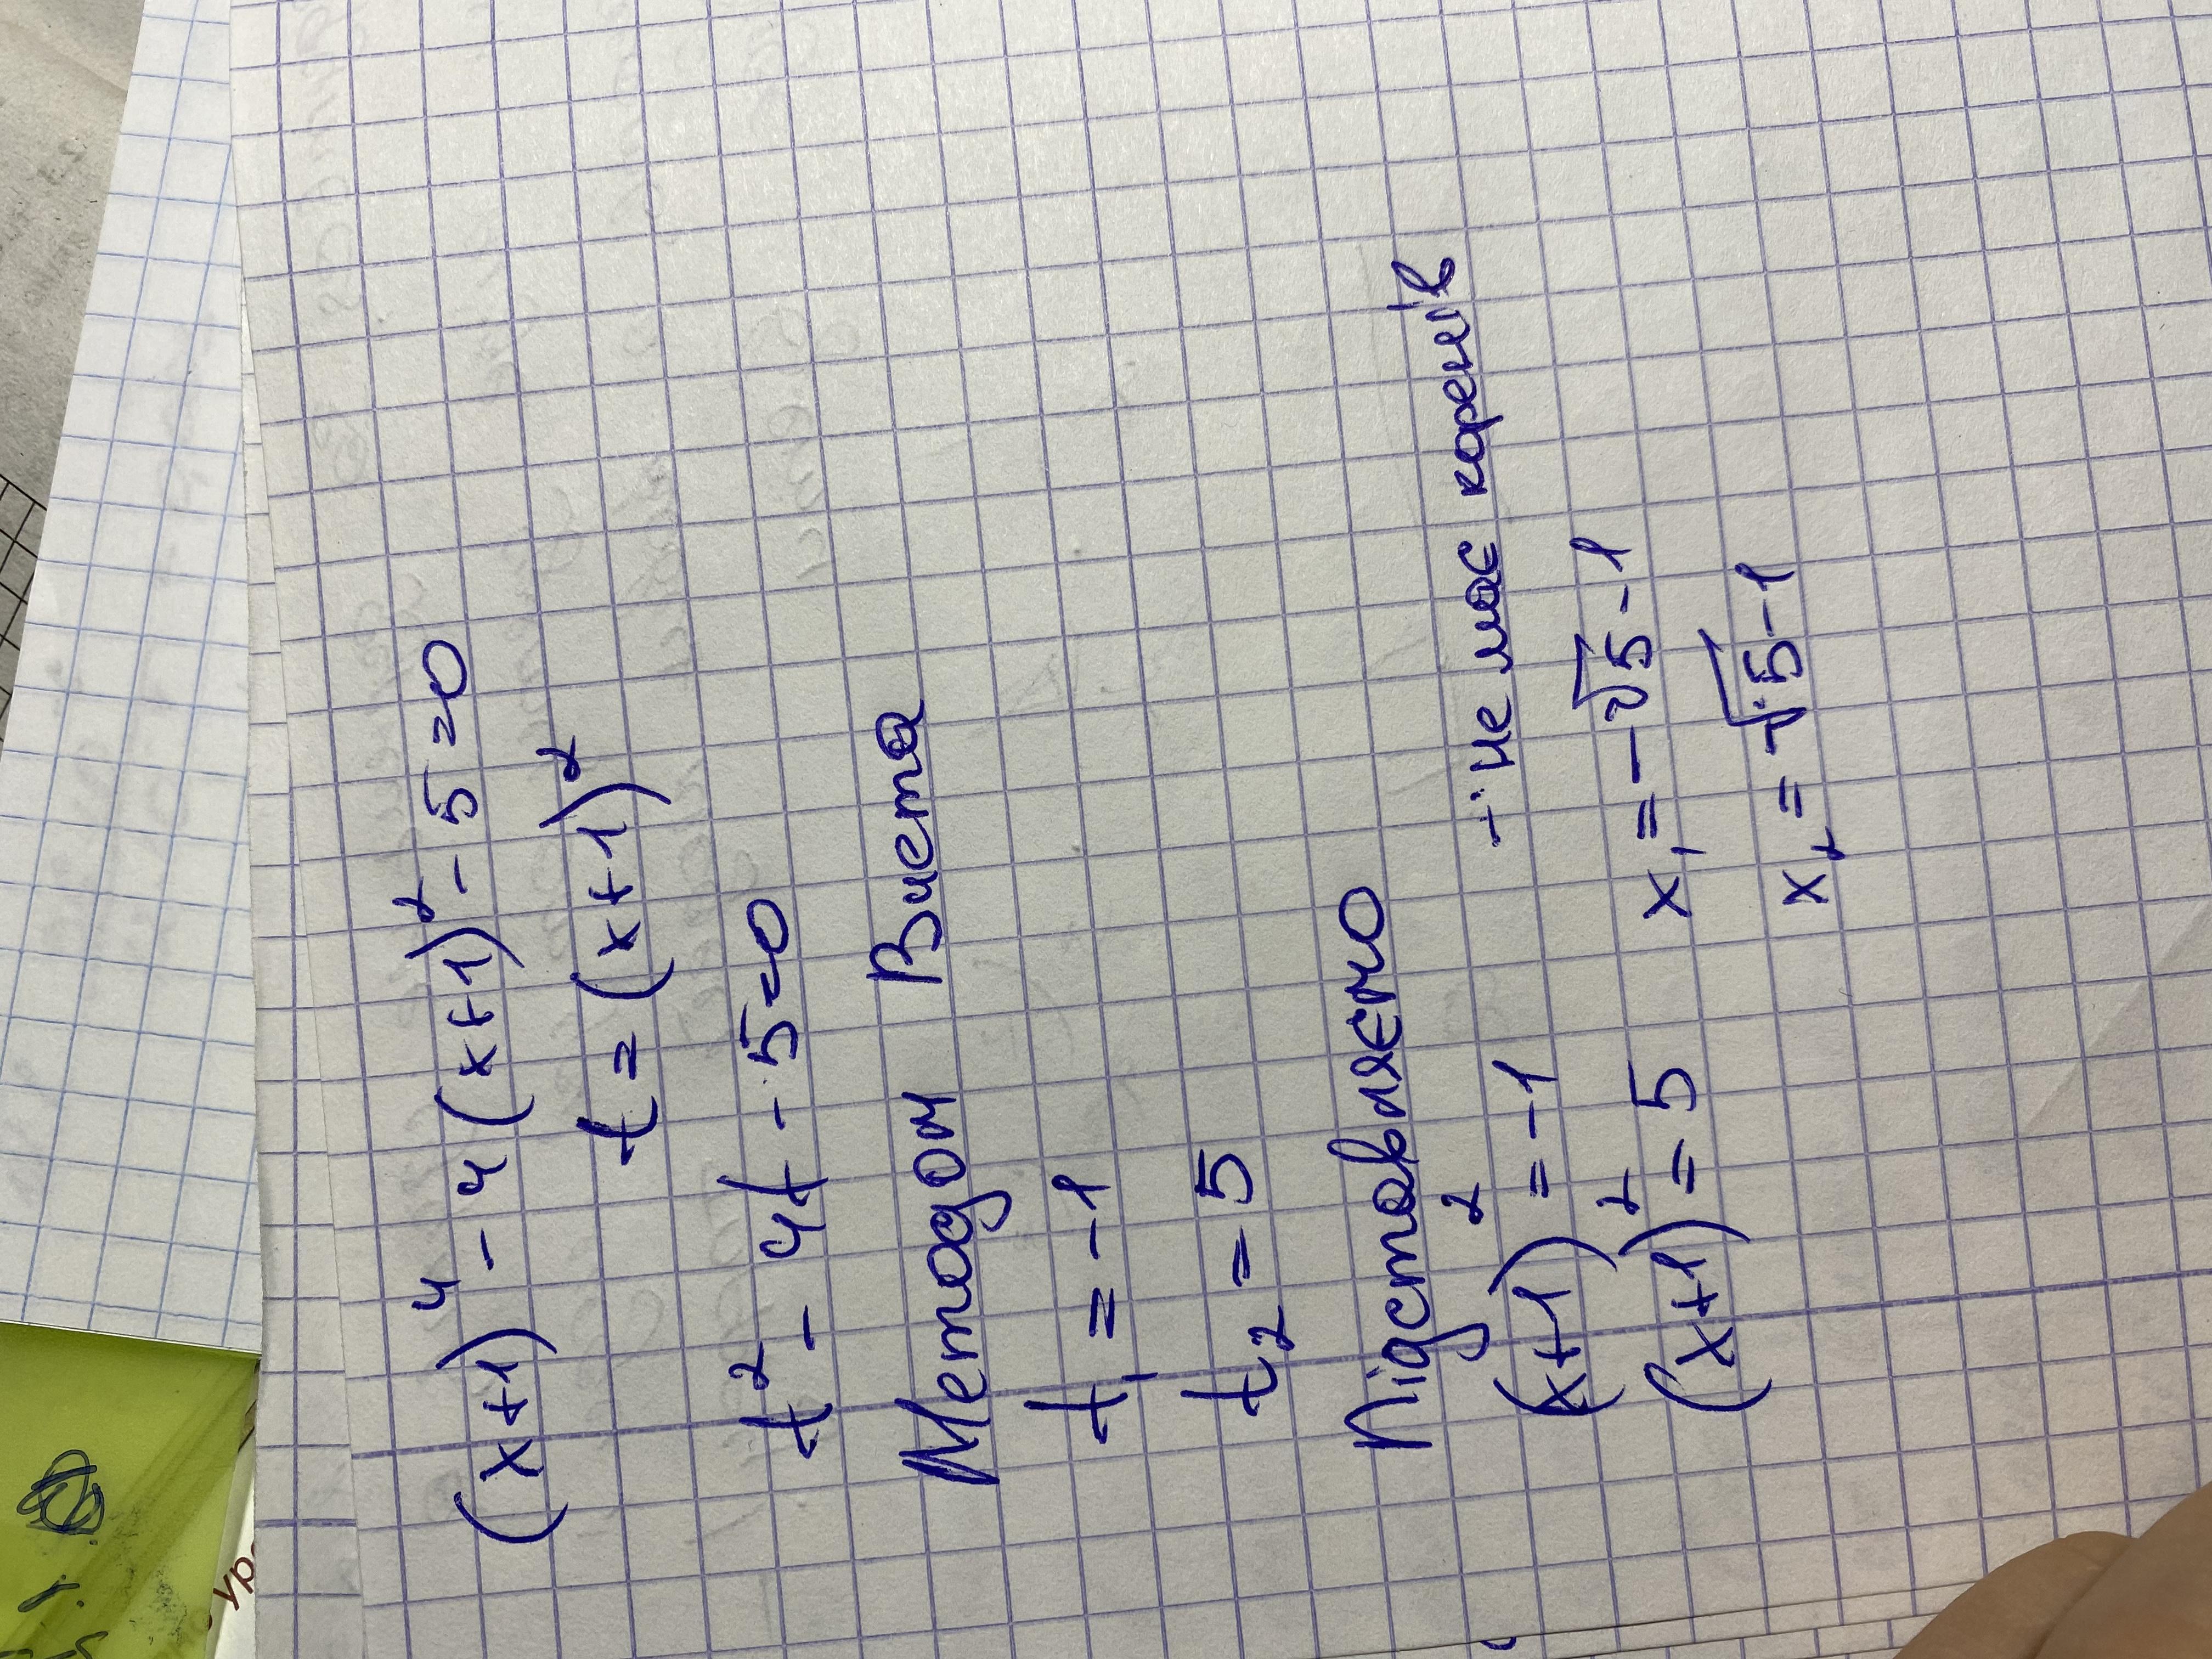 (x+1)⁴ - 4(x+1)² - 5 = 0
t = (x+1)²
t² - 4t - 5 = 0
Методом Виета
t₁ = -1
t₂ = 5
Підставляємо
(x+1)² = -1 - не має коренів
(x+1)² = 5 x₁ = -√5 - 1
x₂ = √5 - 1